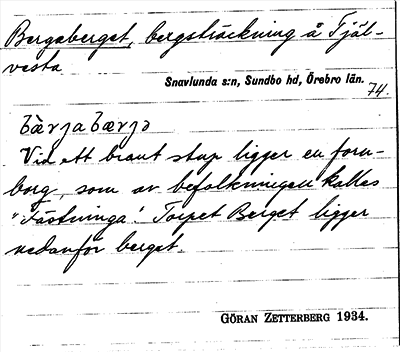 Bergaberget, bergsträckning å Tjäl-
vesta
Snavlunda s:n, Sundbo hd, Örebro län.
74.
bæ̀rjabærjə
Vid ett brant stup ligger en forn-
borg, som av befolkningen kallas
"Fästninga". Torpet Berget ligger
nedanför berget.
GÖRAN ZETTERBERG 1934.